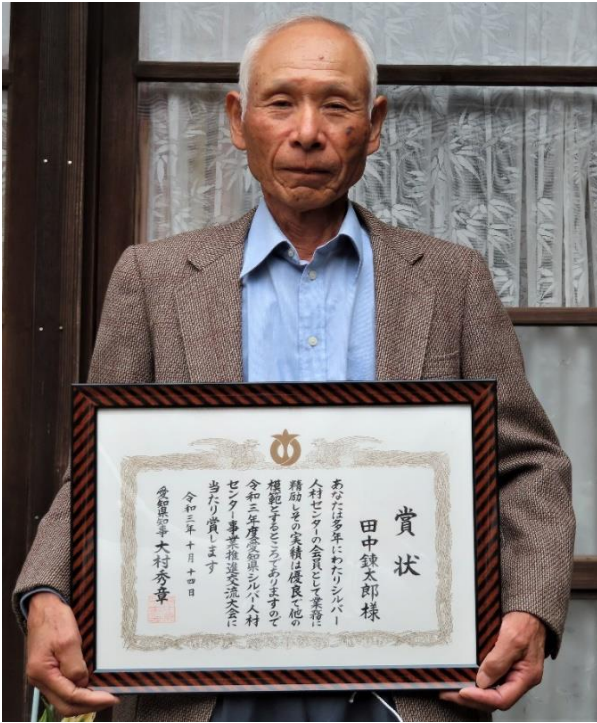 賞状
田中錬太郎様
あなたは多年にわたりシルバー
人材センターの会員として業務に
精励しその実績は優良で他の
模範とするところでありますので
令和三年度愛知県シルバー人材
センター事業推進交流大会に
当たり賞します
令和三年十月十四日
愛知県知事 大村秀章